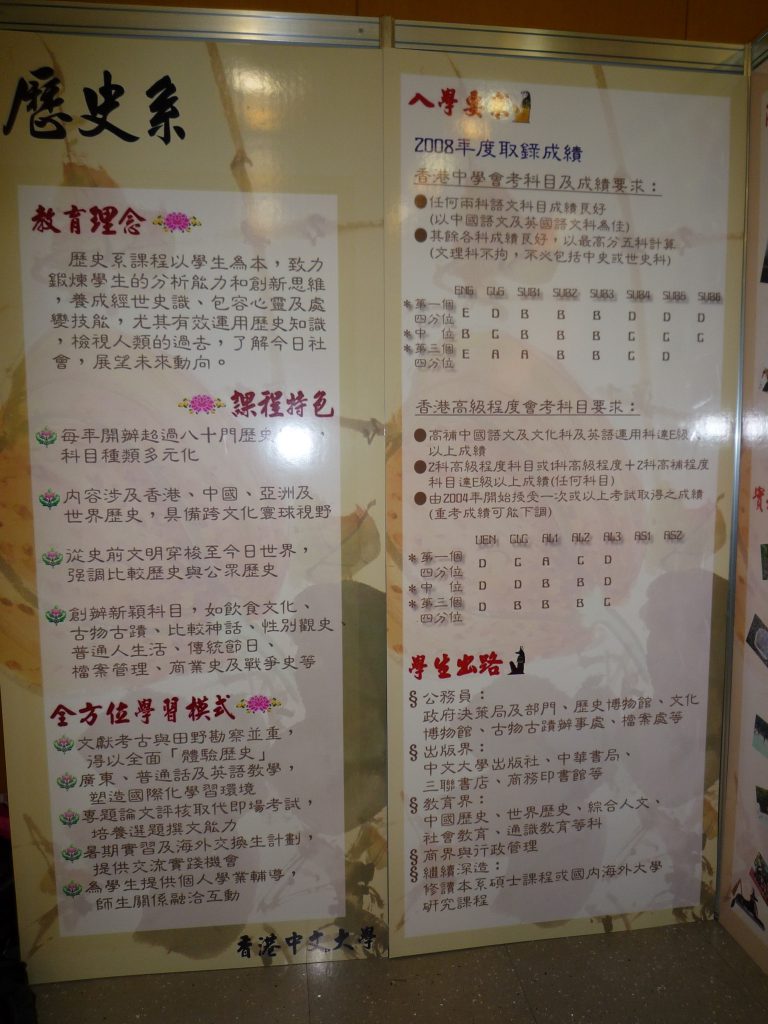 歷史系
教育理念
歷史系課程以學生為本，致力
鍛煉學生的分析能力和創新思維
，養成經世史識、包容心靈及處
變技能，尤其有效運用歷史知識
，檢視人類的過去，了解今日社
會，展望未來動向。
課程特色
每年開辦超過八十門歷史
科目種類多元化
內容涉及香港、中國、亞洲及
世界歷史，具備跨文化寰球視野
從史前文明穿梭至今日世界，
強調比較歷史與公眾歷史
創辦新穎科目，如飲食文化、
古物古蹟、比較神話、性別觀史、
普通人生活、傳統節日、
檔案管理、商業史及戰爭史等
全方位學習模式
文獻考古與田野勘察並重，
得以全面「體驗歷史」
廣東、普通話及英語教學，
塑造國際化學習環境
專題論文評核取代即場考試，
培養選題撰文能力
暑期實習及海外交換生計劃，
提供交流實踐機會
為學生提供個人學業輔導，
師生關係融洽互動
香港中文大學
入學要求
2008年度取錄成績
香港中學會考科目及成績要求：
●任何兩科語文科目成績良好
(以中國語文及英國語文科為佳)
●其餘各科成績良好，以最高分五科計算
(文理科不拘，不必包括中史或世史科)
ENG CLG SUB1 SUB2 SUB3 SUB4 SUB5 SUB6
*第一個四分位 E D B B B D D D
*中 位 B C B B B C C C
*第三個四分位 E A A B B C D
香港高級程度會考科目要求：
●高補中國語文及文化科及英語運用科達E級或
以上成績
●2科高級程度科目或1科高級程度＋2科高補程度
科目達E級以上成績(任何科目)
●由2004年開始接受一次或以上考試取得之成績
(重考成績可能下調)
UEN CLC AL1 AL2 AL3 AS1 AS2
*第一個四分位 D C A C D
*中 位 D B B B D
*第三個四分位 D B B B C
學生出路
§公務員：
政府決策局及部門、歷史博物館、文化
博物館、古物古蹟辦事處、檔案處等
§出版界：
中文大學出版社、中華書局、
三聯書店、商務印書館等
§教育界：
中國歷史、世界歷史、綜合人文、
社會教育、通識教育等科
§商界與行政管理
§繼續深造：
修讀本系碩士課程或國內海外大學
研究課程